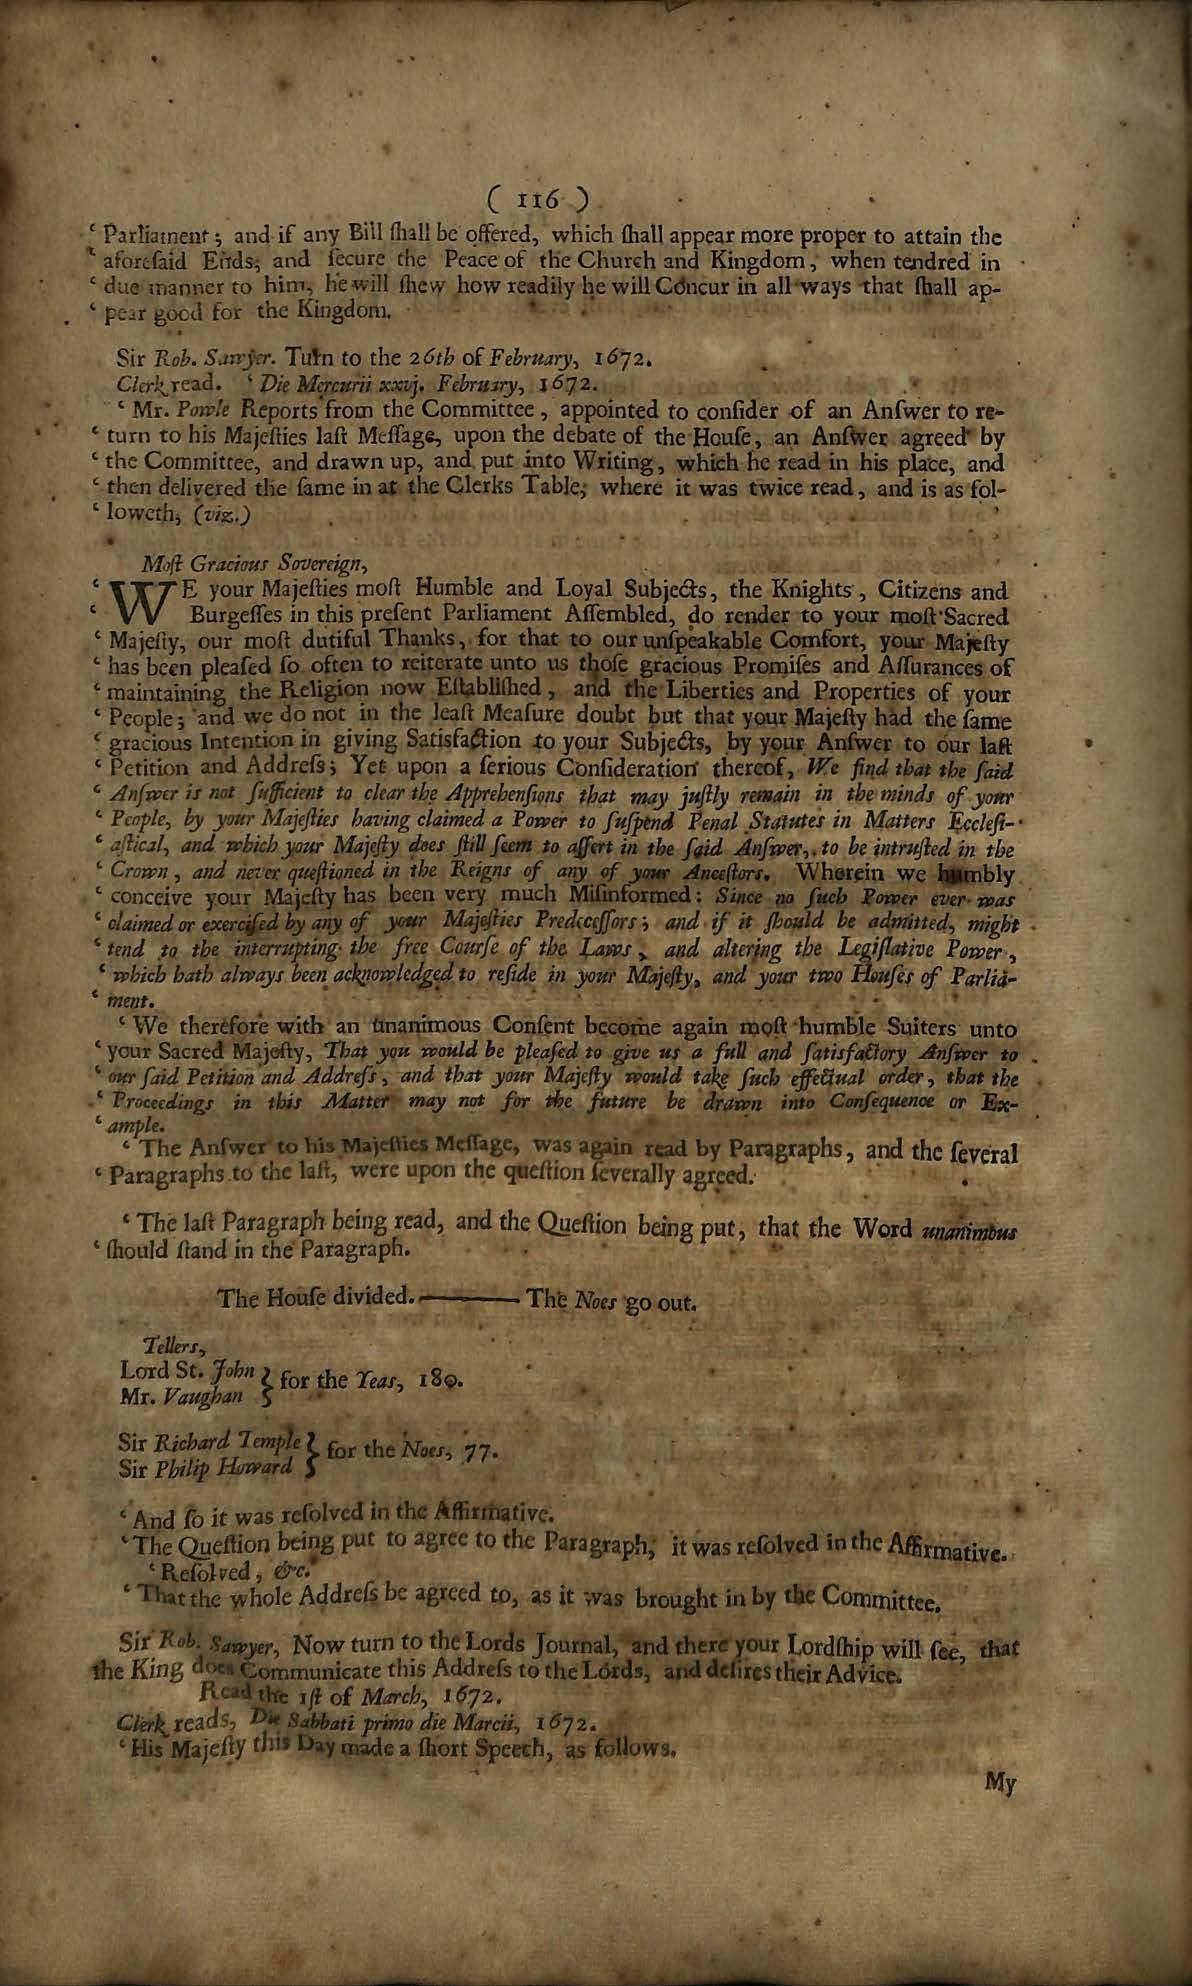 ( 116 )
‘ Parliament; and if any Bill ſhall be offered, which ſhall appear more proper to attain the
‘ aforeſaid Ends, and ſecure the Peace of the Church and Kingdom, when tendred in
‘ due manner to him, he will ſhew how readily he will Concur in all ways that ſhall ap-
‘ pear good for the Kingdom.
Sir Rob. Sawyer. Turn to the 26th of February, 1672.
Clerk read. ‘ Die Mercurii xxvj. February, 1672.
‘ Mr. Powle Reports from the Committee, appointed to conſider of an Anſwer to re-
‘ turn to his Majeſties laſt Meſſage, upon the debate of the Houſe, an Anſwer agreed by
‘ the Committee, and drawn up, and put into Writing, which he read in his place, and
‘ then delivered the ſame in at the Clerks Table; where it was twice read, and is as fol-
‘ loweth, (viz.)
Moſt Gracious Sovereign,
‘ WE your Majeſties moſt Humble and Loyal Subjects, the Knights, Citizens and
‘ Burgeſſes in this preſent Parliament Aſſembled, do render to your moſt Sacred
‘ Majeſty, our moſt dutiful Thanks, for that to our unſpeakable Comfort, your Majeſty
‘ has been pleaſed ſo often to reiterate unto us thoſe gracious Promiſes and Aſſurances of
‘ maintaining the Religion now Eſtabliſhed, and the Liberties and Properties of your
‘ People; and we do not in the leaſt Meaſure doubt but that your Majeſty had the ſame
‘ gracious Intention in giving Satisfaction to your Subjects, by your Anſwer to our laſt
‘ Petition and Addreſs; Yet upon a ſerious Conſideration thereof, We find that the ſaid
‘ Anſwer is not ſufficient to clear the Apprehenſions that may juſtly remain in the minds of your
‘ People, by your Majeſties having claimed a Power to ſuſpend Penal Statutes in Matters Eccleſi-
‘ aſtical, and which your Majeſty does ſtill ſeem to aſſert in the ſaid Anſwer, to be intruſted in the
‘ Crown, and never queſtioned in the Reigns of any of your Anceſtors. Wherein we humbly
‘ conceive your Majeſty has been very much Miſinformed: Since no ſuch Power ever was
‘ claimed or exerciſed by any of your Majeſties Predeceſſors; and if it ſhould be admitted, might
‘ tend to the interrupting the free Courſe of the Laws, and altering the Legiſlative Power,
‘ which hath always been acknowledged to reſide in your Majeſty, and your two Houſes of Parlia-
‘ ment.
‘ We therefore with an unanimous Conſent become again moſt humble Suiters unto
‘ your Sacred Majeſty, That you would be pleaſed to give us a full and ſatisfactory Anſwer to
‘ our ſaid Petition and Addreſs, and that your Majeſty would take ſuch effectual order, that the
‘ Proceedings in this Matter may not for the future be drawn into Conſequence or Ex-
‘ ample.
‘ The Anſwer to his Majeſties Meſſage, was again read by Paragraphs, and the ſeveral
‘ Paragraphs to the laſt, were upon the queſtion ſeverally agreed.
‘ The laſt Paragraph being read, and the Queſtion being put, that the Word unanimous
‘ ſhould ſtand in the Paragraph.
The Houſe divided.——The Noes go out.
Tellers,
Lord St. John
Mr. Vaughan } for the Yeas, 180.
Sir Richard Temple
Sir Philip Howard } for the Noes, 77.
‘ And ſo it was reſolved in the Affirmative.
‘ The Queſtion being put to agree to the Paragraph, it was reſolved in the Affirmative.
‘ Reſolved, &c.
‘ That the whole Addreſs be agreed to, as it was brought in by the Committee.
Sir Rob. Sawyer, Now turn to the Lords Journal, and there your Lordſhip will ſee, that
the King does Communicate this Addreſs to the Lords, and deſires their Advice.
Read the 1ſt of March, 1672.
Clerk reads, Die Sabbati primo die Marcii, 1672.
‘ His Majeſty this Day made a ſhort Speech, as follows.
My